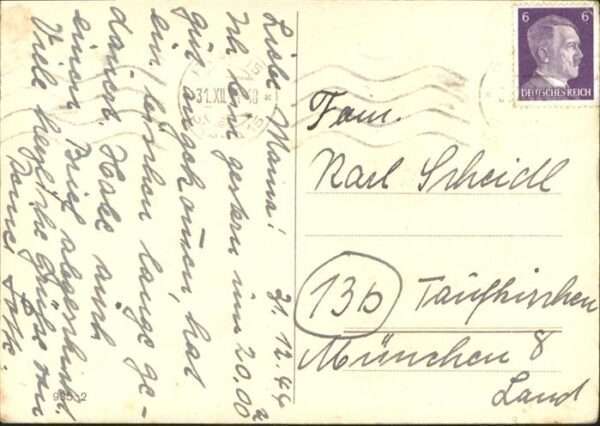 Liebe Mama! 31.12.44
Ich bin gestern um 20.00
gut angekommen, hat
ein bischen lange ge-
dauert. Habe auch
einen Brief abgeschickt.
Viele herzliche Grüße von
31.XII.
6 6
DEUTSCHES REICH
Fam.
Karl Scheidl
13b Taufkirchen
München 8
Land